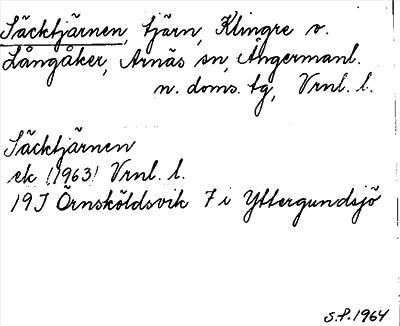 Säcktjärnen, tjärn, Klingre v.
Långåker, Arnäs sn, Ångermanl.
n. doms. tg, Vrnl. l.
Säcktjärnen
ek (1963) Vrnl. l.
19J Örnsköldsvik 7 i Yttergundsjö
S.P. 1964